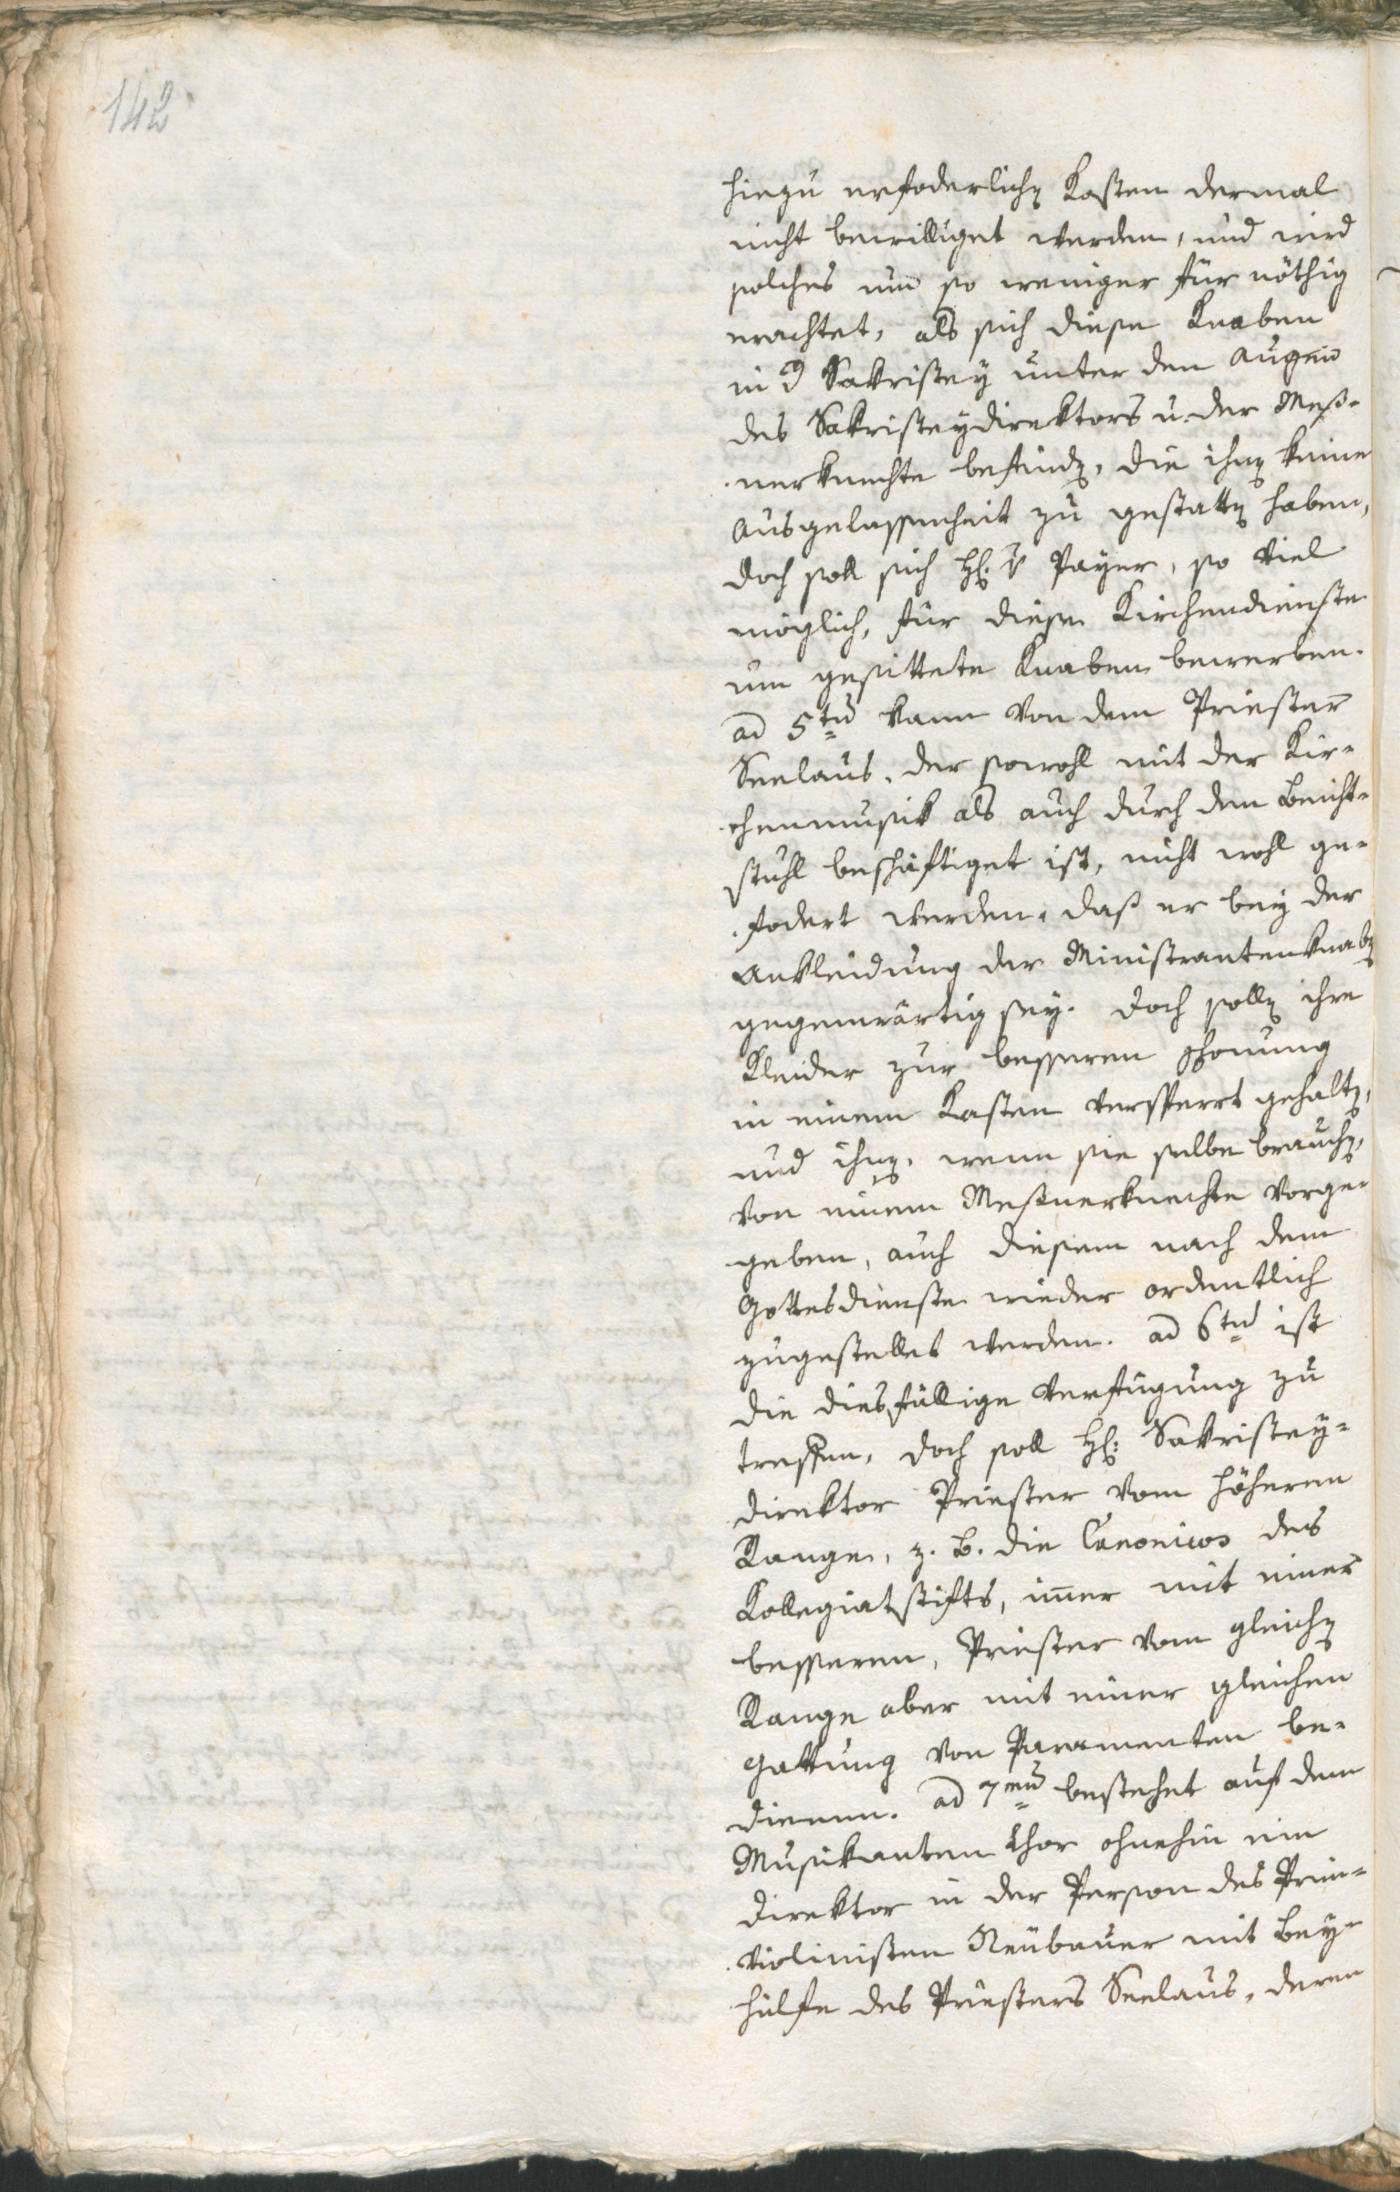 142
hiezu erfoderlichen Kosten dermal
nicht bewilliget werden, und wird
solches um so weniger für nöthig
erachtet, als sich diese Knaben
in der Sakristey unter den Augen
des Sakristeydirektors u. der Meß-
nerknechte befinden, die ihnen keine
Ausgelassenheit zu gestatten haben,
doch soll sich H. v Payer, so viel
möglich, für diese Kirchendienste
um gesittete Knaben bewerben.
ad 5tum kann von dem Priester
Seelaus, der sowohl mit der Kir-
chenmusik als auch durch den Beicht-
stuhl beschäftiget ist, nicht wohl ge-
fodert werden, daß er bey der
Ankleidung der Ministrantenknaben
gegenwärtig sey. Doch sollen ihre
Kleider zur besseren Schonung
in einem Kasten versperrt gehalten,
und ihnen, wenn sie selbe brauchen,
von einem Meßnerknechte vorge-
geben, auch diesem nach dem
Gottesdienste wieder ordentlich
zugestellet werden. ad 6tum ist
die diesfällige Verfügung zu
treffen, doch soll H: Sakristey-
direktor Priester vom höheren
Range, z. B. die Canonicos des
Kollegiatstifts, immer mit einer
besseren, Priester vom gleichen
Range aber mit einer gleichen
Gattung von Paramenten be-
dienen. ad 7mum bestehet auf dem
Musikanten Chor ohnehin ein
Direktor in der Person des Prim-
violinisten Neubauer mit Bey-
hülfe des Priesters Seelaus, deren